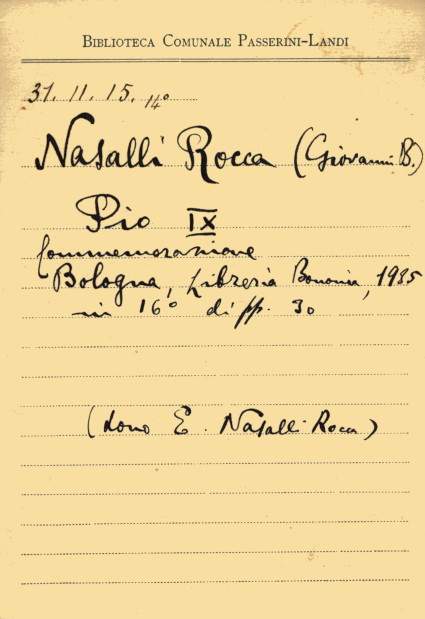 BIBLIOTECA COMUNALE PASSERINI-LANDI
31. 11. 15. 14°
Nasalli Rocca (Giovanni B.)
Pio IX
Commemorazione
Bologna, Libreria Bononia, 1935
in 16° di pp. 30
(dono E. Nasalli-Rocca)